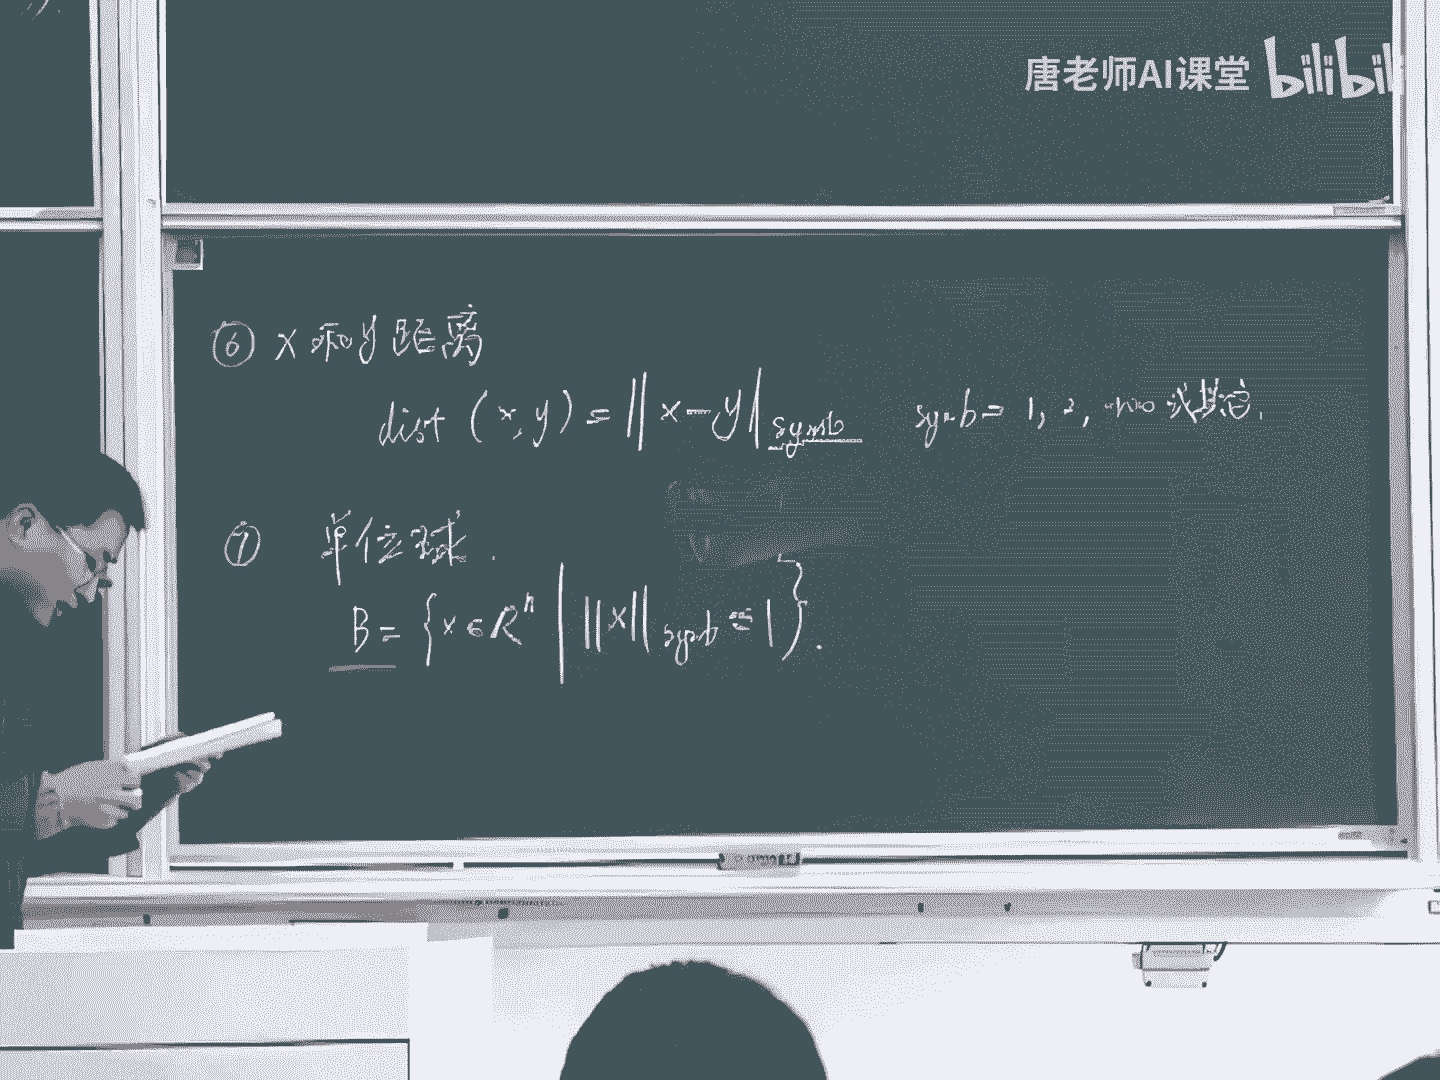 唐老师AI课堂 bilibili
⑥ x 和 y 距离
dist (x, y) = ‖x-y‖symb symb = 1, 2, +∞ 或其它.
⑦ 单位球.
B = {x ∈ Rⁿ | ‖x‖symb ≤ 1}.